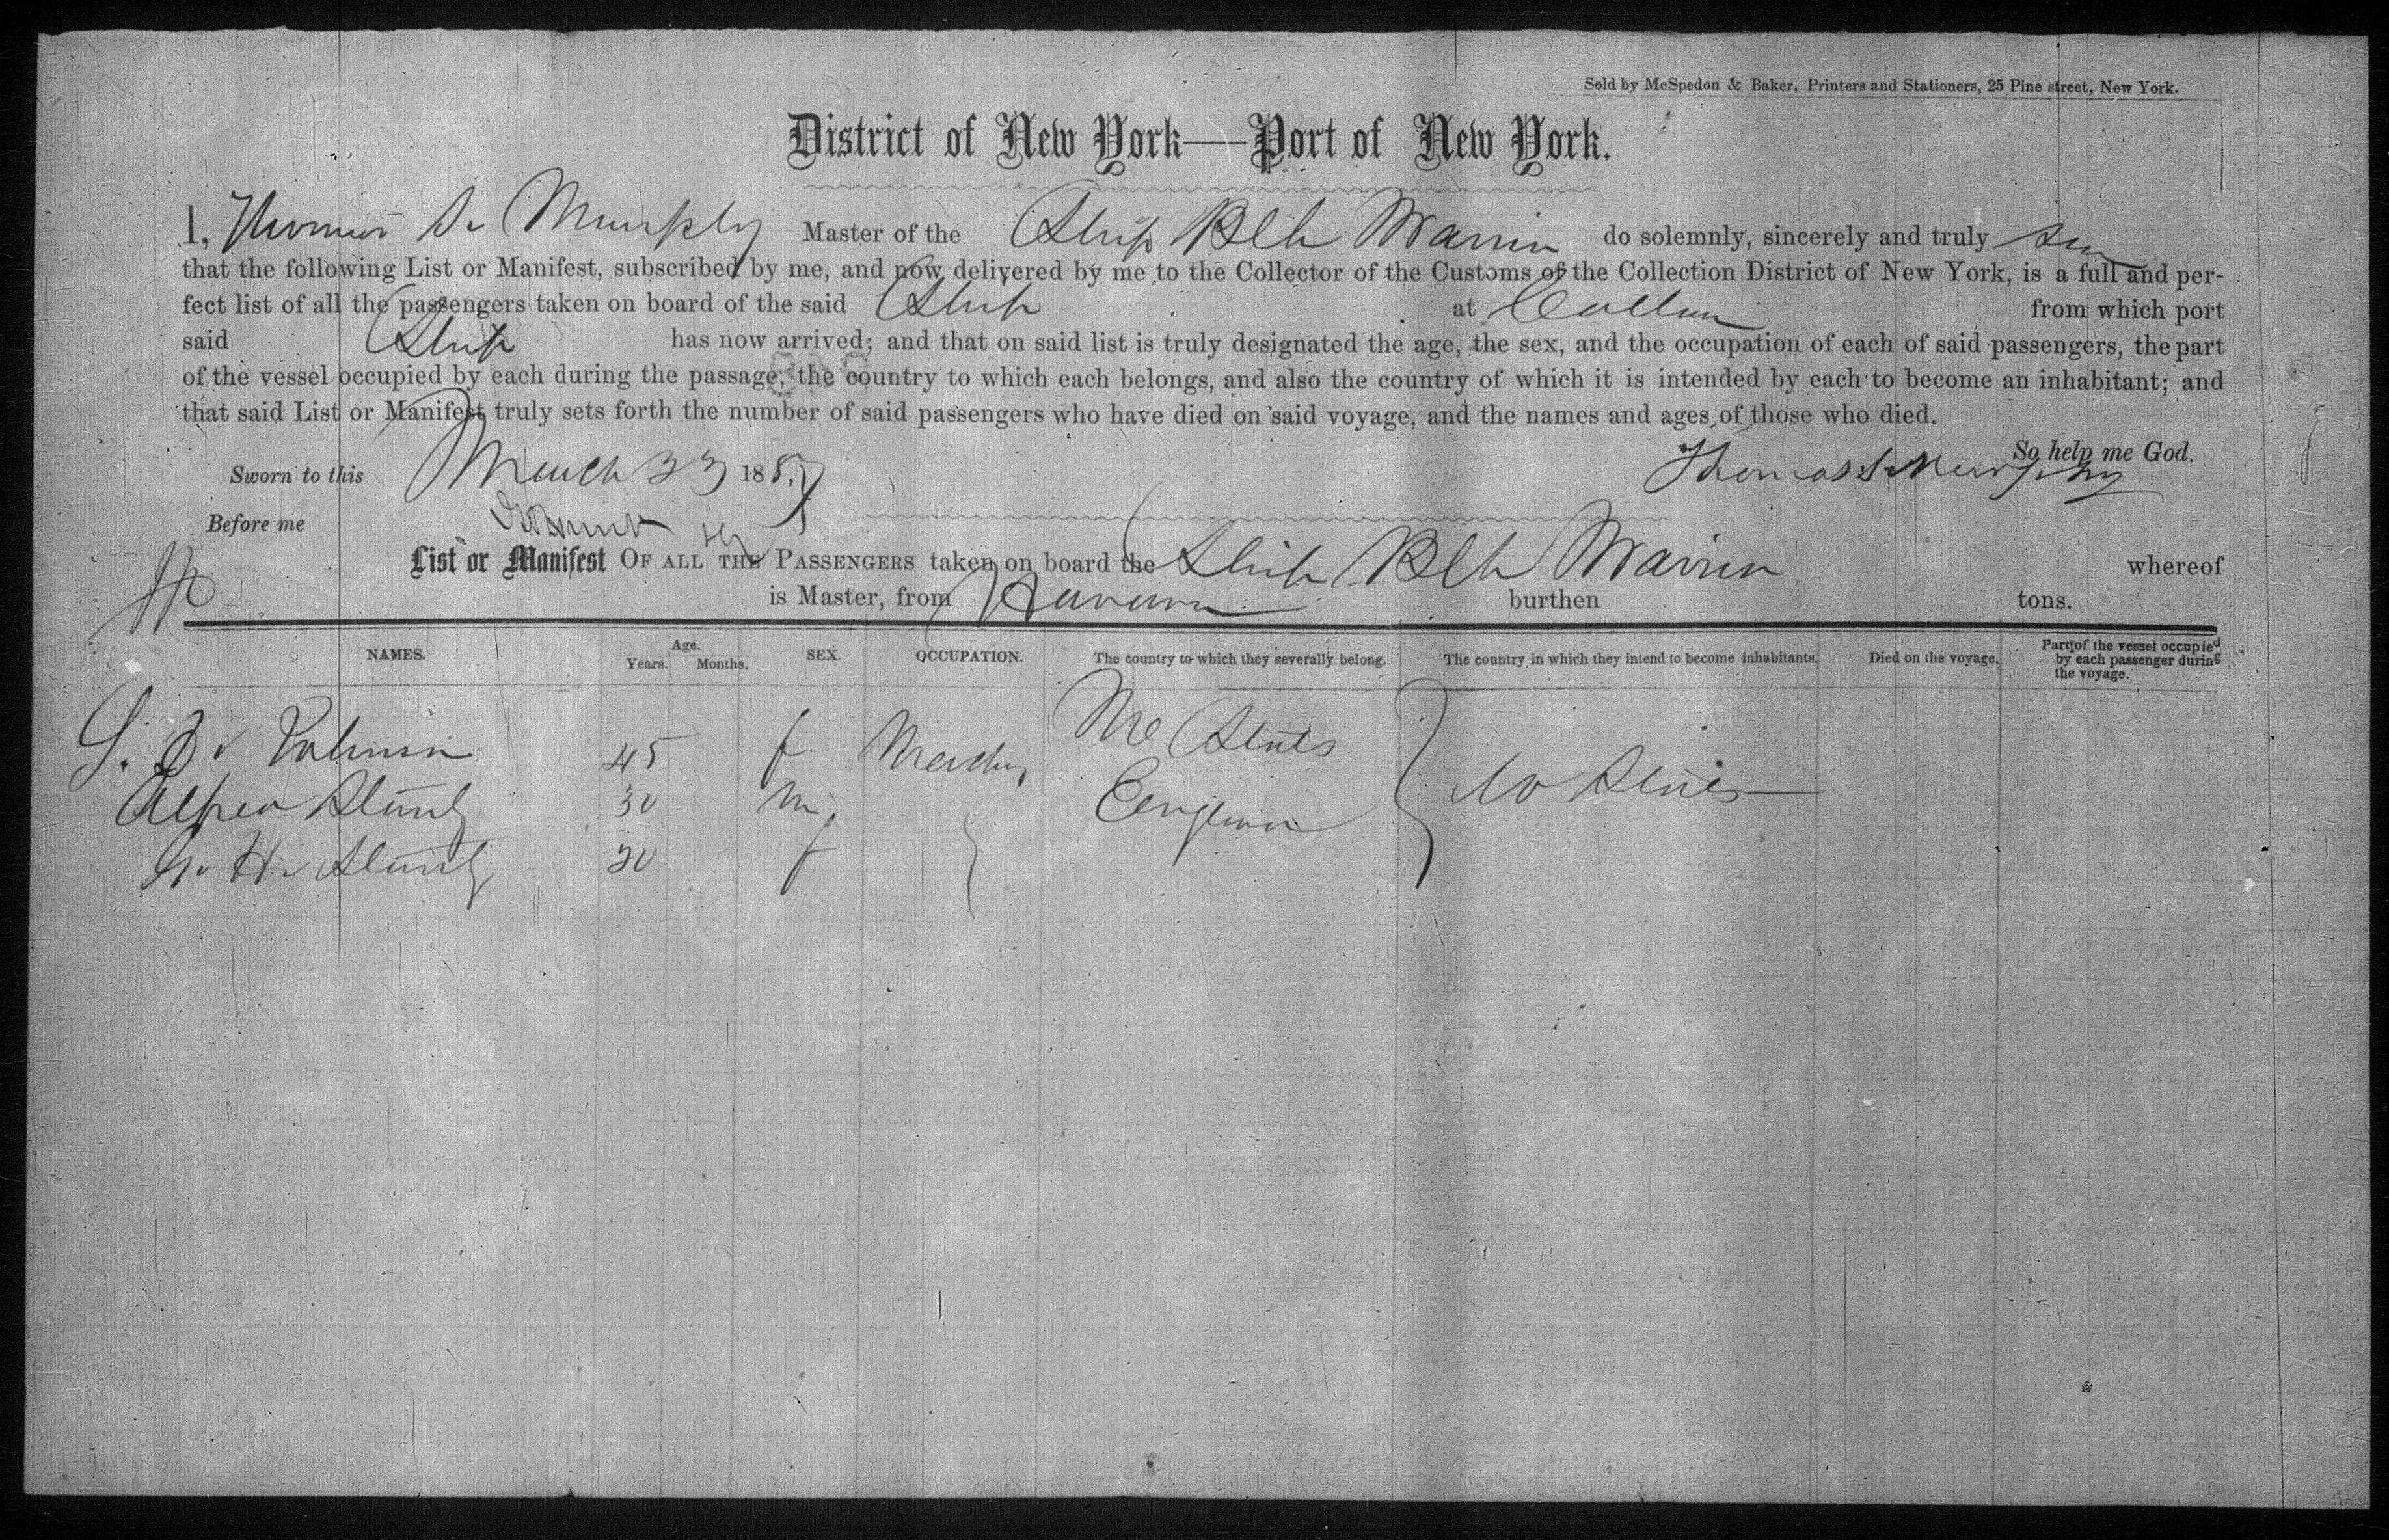 Sold by McSpedon & Baker, Printers and Stationers, 25 Pine street, New York.
District of New York—Port of New York.
I, Thomas S. Murphy Master of the Ship Warren do solemnly, sincerely and truly
that the following List or Manifest, subscribed by me, and now delivered by me to the Collector of the Customs of the Collection District of New York, is a full and per-
fect list of all the passengers taken on board of the said Ship at from which port
said Ship has now arrived; and that on said list is truly designated the age, the sex, and the occupation of each of said passengers, the part
of the vessel occupied by each during the passage, the country to which each belongs, and also the country of which it is intended by each to become an inhabitant; and
that said List or Manifest truly sets forth the number of said passengers who have died on said voyage, and the names and ages of those who died.
So help me God.
Sworn to this March 23 1857 Thomas S. Murphy
Before me
List or Manifest OF ALL THE PASSENGERS taken on board the Ship Warren whereof
is Master, from Havana burthen tons.
NAMES. Age. Years. Months. SEX. OCCUPATION. The country to which they severally belong. The country in which they intend to become inhabitants. Died on the voyage. Part of the vessel occupied by each passenger during the voyage.
45 f States
Alfred 30 m England States
H. 20 f